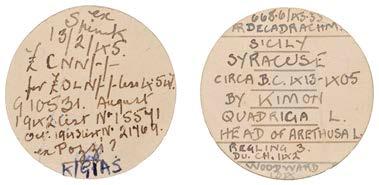 ex
Spink
13/2/1x5.
£CNN/-/-
for £OLN/-/- less 1x5%.
910531. August
19x2 List Nº 15571
Oct. 1913 List Nº 21769.
ex Pozzi?
668.6/x3.53
A. DECADRACHM.
SICILY
SYRACUSE
CIRCA B.C. 1x13-1x05
BY KIMON
QUADRIGA L.
HEAD OF ARETHUSA L.
REGLING 3.
DU. CH. 1x2
WOODWARD